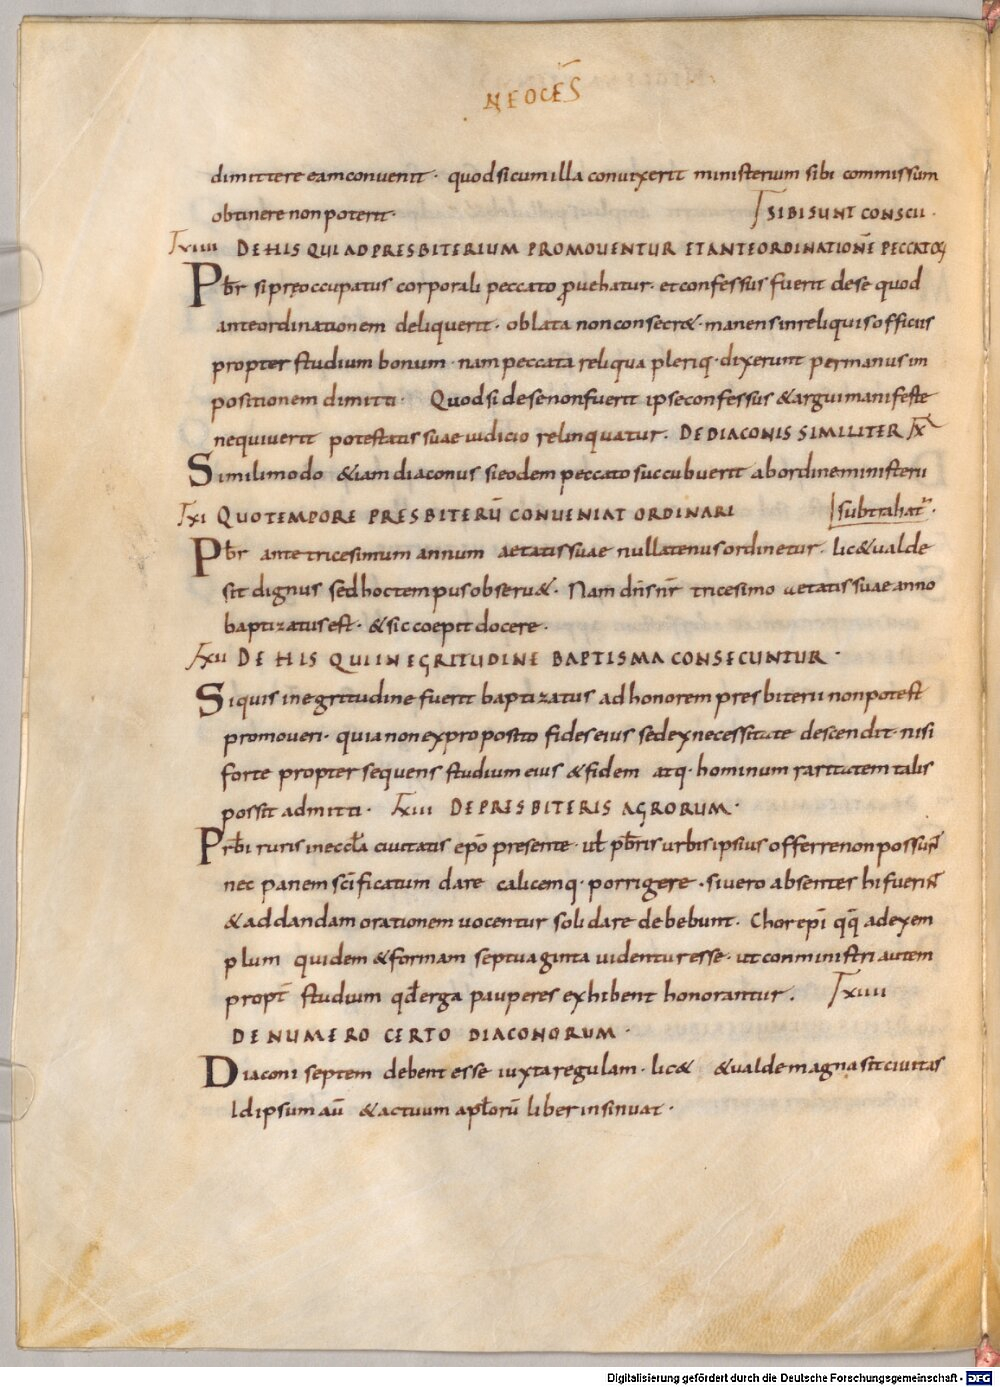 NEOCES̄
dimittere eam convenit · quod si cum illa convixerit ministerium sibi commissum
obtinere non poterit · SIBI SUNT CONSCII ·
VIIII DE HIS QUI AD PRESBITERIUM PROMOVENTUR ET ANTE ORDINATIONĒ PECCATORṼ
Pbr̄ si pręoccupatus corporali peccato ꝓvehatur · et confessus fuerit de se quod
ante ordinationem deliquerit · oblata non consecr& · manens in reliquis officiis
propter studium bonum · nam peccata reliqua pleriq · dixerunt per manus im
positionem dimitti · Quod si de se non fuerit ipse confessus & argui manifeste
nequiverit potestatis suae iudicio relinquatur . DE DIACONIS SIMILITER X
Simili modo &iam diaconus si eodem peccato succubuerit ab ordine ministerii
subtrahat̄ ·
XI QUO TEMPORE PRESBITERŪ CONVENIAT ORDINARI
Pbr̄ ante tricesimum annum aetatis suae nullatenus ordinetur · lic& valde
sit dignus sed hoc tempus observ& · Nam dn̄s nr̄ tricesimo aetatis suae anno
baptizatus est · & sic coepit docere ·
XII DE HIS QUI IN EGRITUDINE BAPTISMA CONSECUNTUR ·
Si quis in egritudine fuerit baptizatus ad honorem presbiterii non potest
promoveri · quia non ex proposito fides eius sed ex necessitate descendit · nisi
forte propter sequens studium eius & fidem atq · hominum raritatem talis
possit admitti · XIII DE PRESBITERIS AGRORUM ·
Prb̄i ruris in eccl̄a civitatis ep̄o presente · ut̄ pb̄ris urbis ipsius offerre non possuṅt
nec panem sc̄ificatum dare calicemq · porrigere · si vero absentes hi fuerint
& ad dandam orationem vocentur soli dare debebunt · Chorepi̅ qq̄ ad exem
plum quidem & formam septuaginta videntur esse · ut conministri autem
propt̄ studium qđ erga pauperes exhibent honorantur . XIIII
DE NUMERO CERTO DIACONORUM ·
Diaconi septem debent esse iuxta regulam · lic& & valde magna sit civitas
Id ipsum aū & actuum apl̄orū liber insinuat ·
Digitalisierung gefördert durch die Deutsche Forschungsgemeinschaft - DFG